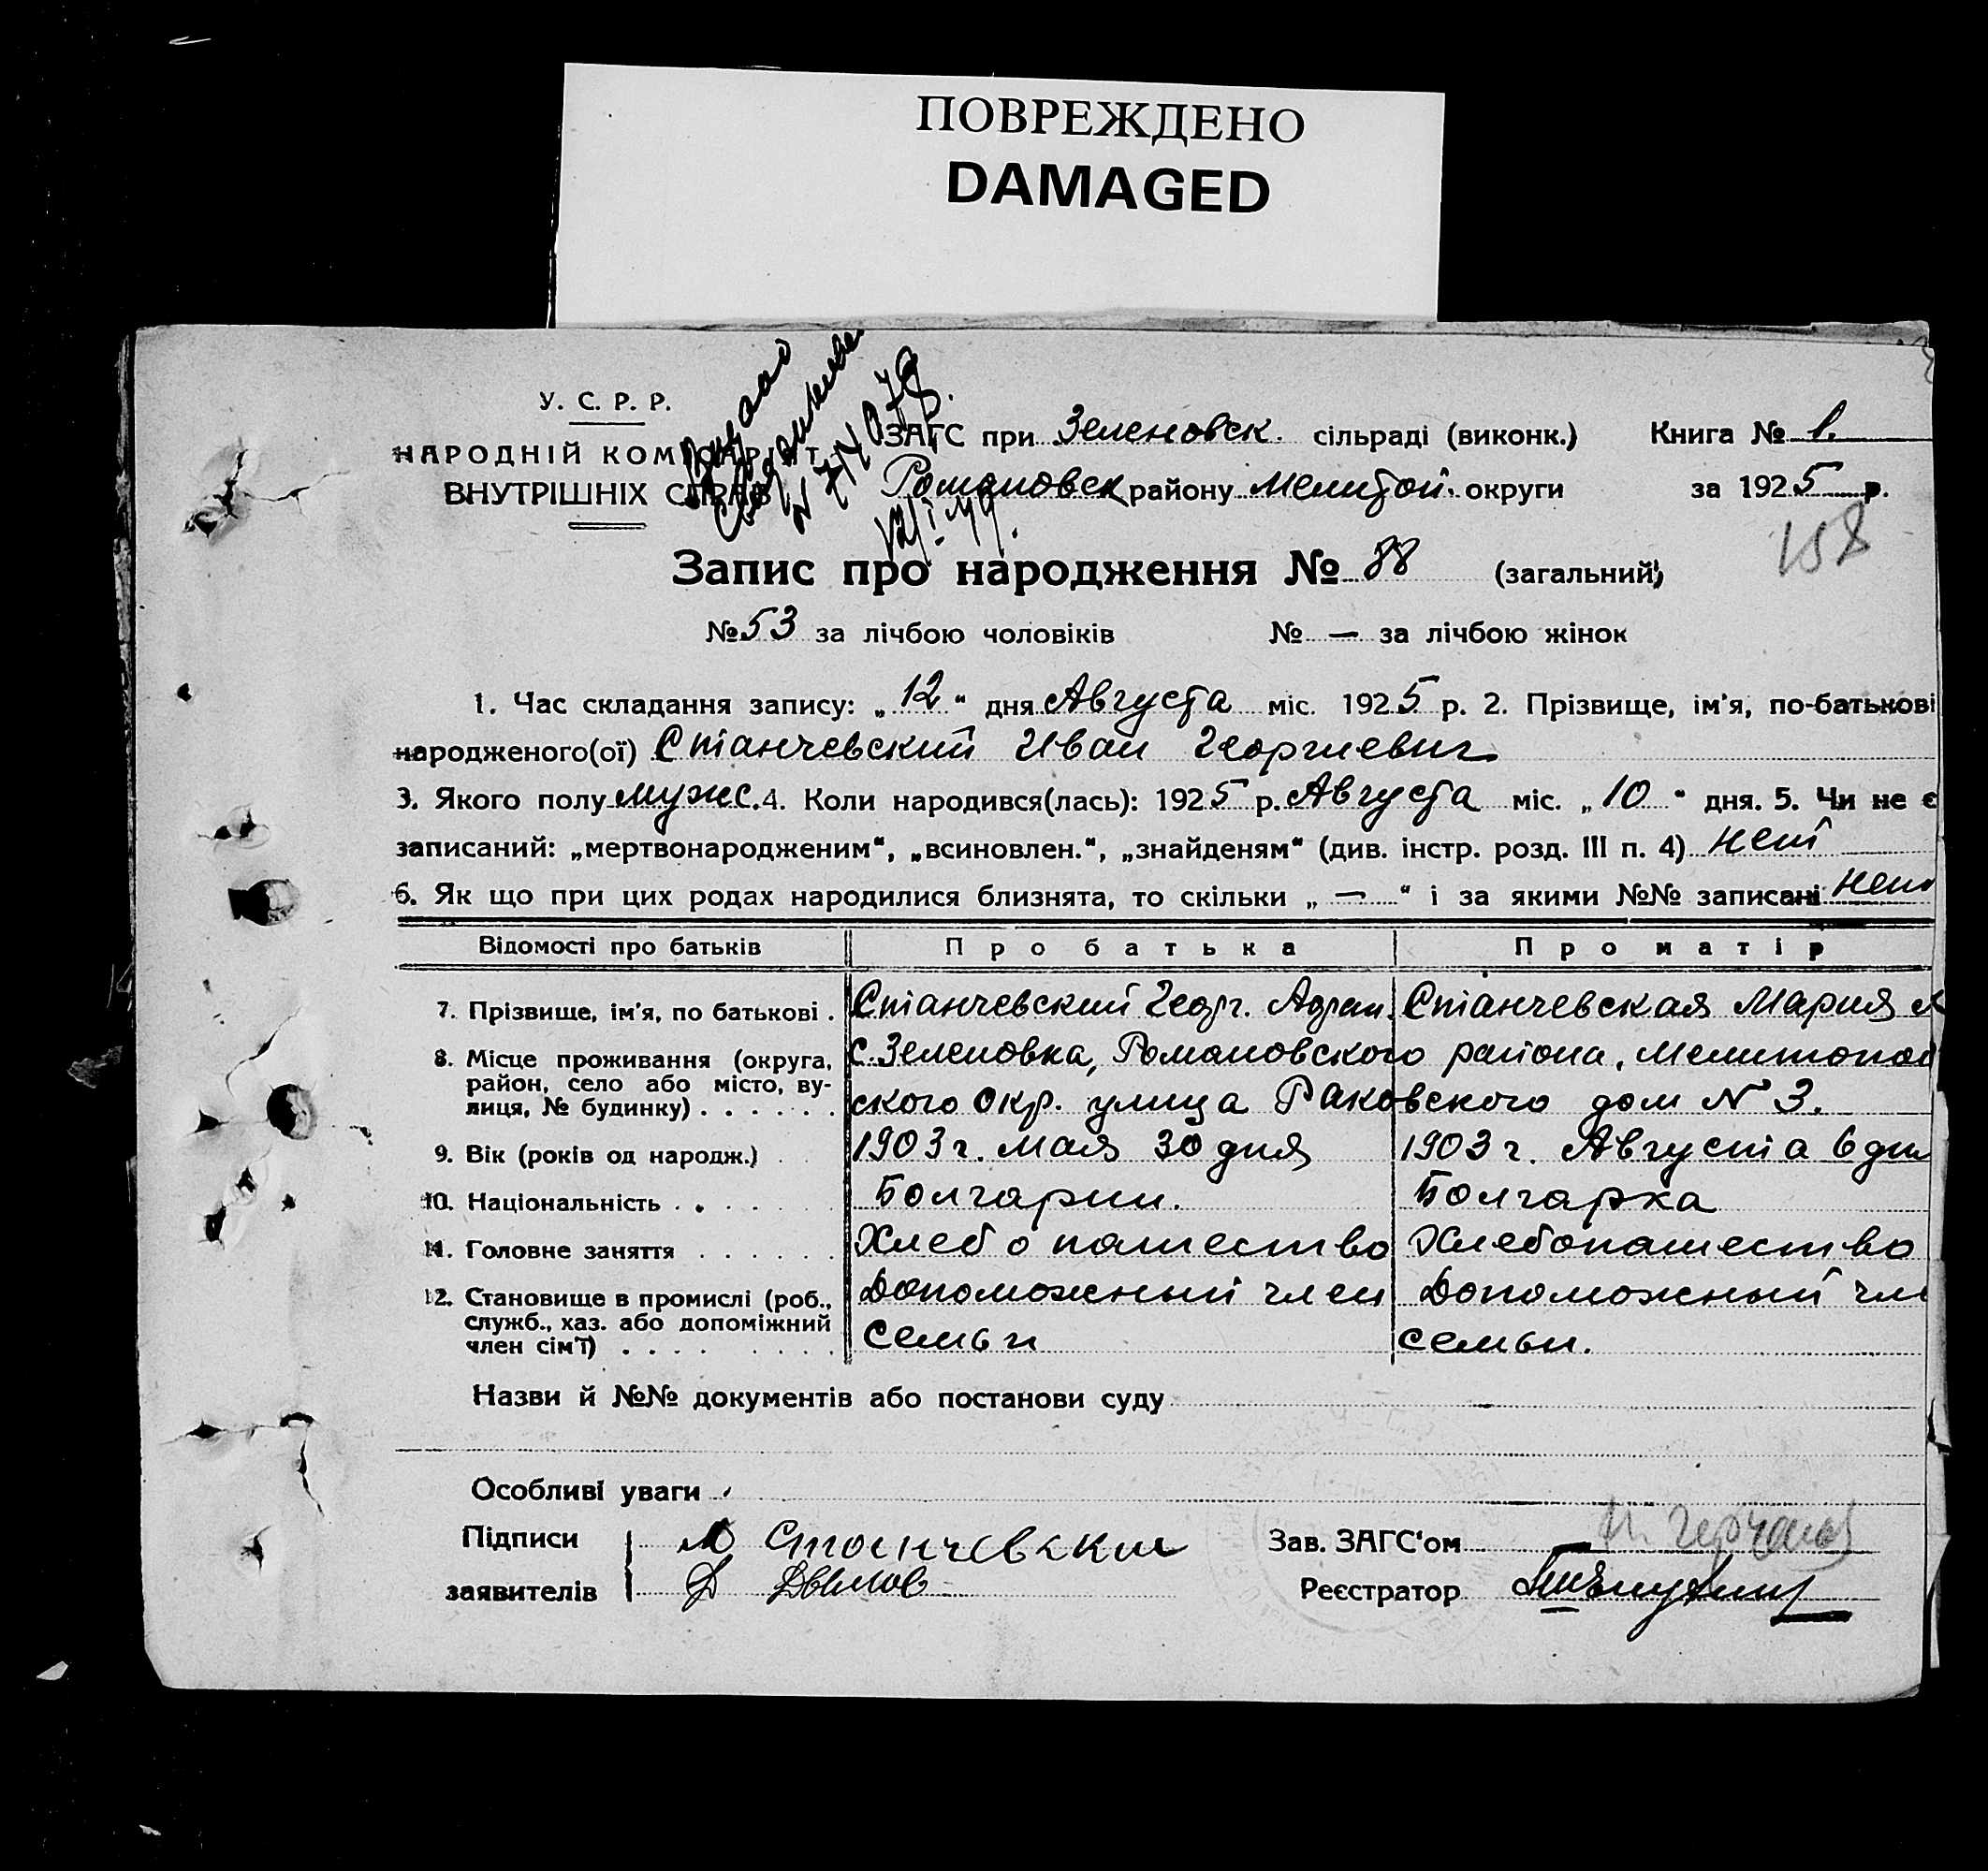 ПОВРЕЖДЕНО
DAMAGED
У. С. Р. Р.
НАРОДНІЙ КОМІСАРІЯТ
ВНУТРІШНІХ СПРАВ
ЗАГС при Зеленовск. сільраді (виконк.) Книга № 1.
Романовск району Мелитоп. округи за 1925 р.
158
Запис про народження № 88 (загальний)
№ 53 за лічбою чоловіків № — за лічбою жінок
1. Час складання запису: „12“ дня Августа міс. 1925 р. 2. Прізвище, ім'я, по-батькові
народженого(ої) Станчевский Иван Георгиевич
3. Якого полу мужс. 4. Коли народився(лась): 1925 р. Августа міс. „10“ дня. 5. Чи не є
записаний: „мертвонародженим“, „всиновлен.“, „знайденям“ (див. інстр. розд. III п. 4) нет
6. Як що при цих родах народилися близнята, то скільки „—“ і за якими №№ записані нет
Відомості про батьків Про батька Про матір
7. Прізвище, ім'я, по батькові . Станчевский Георг. Адриан. Станчевская Мария
8. Місце проживання (округа, район, село або місто, вулиця, № будинку) . . . . . . С. Зеленовка, Романовского района, Мелитополь
ского окр. улица Раковского дом № 3.
9. Вік (років од народж.) . . 1903 г. мая 30 дня 1903 г. Августа 6 дня
10. Національність . . . . . . Болгарин. Болгарка
11. Головне заняття . . . . . . Хлебопашество Хлебопашество
12. Становище в промислі (роб., служб., хаз. або допоміжний член сім'ї) . . . . . . . . Допоможный член Допоможный чл
семьи семьи.
Назви й №№ документів або постанови суду
Особливі уваги
Підписи Станчевски Зав. ЗАГС'ом
заявителів Реєстратор